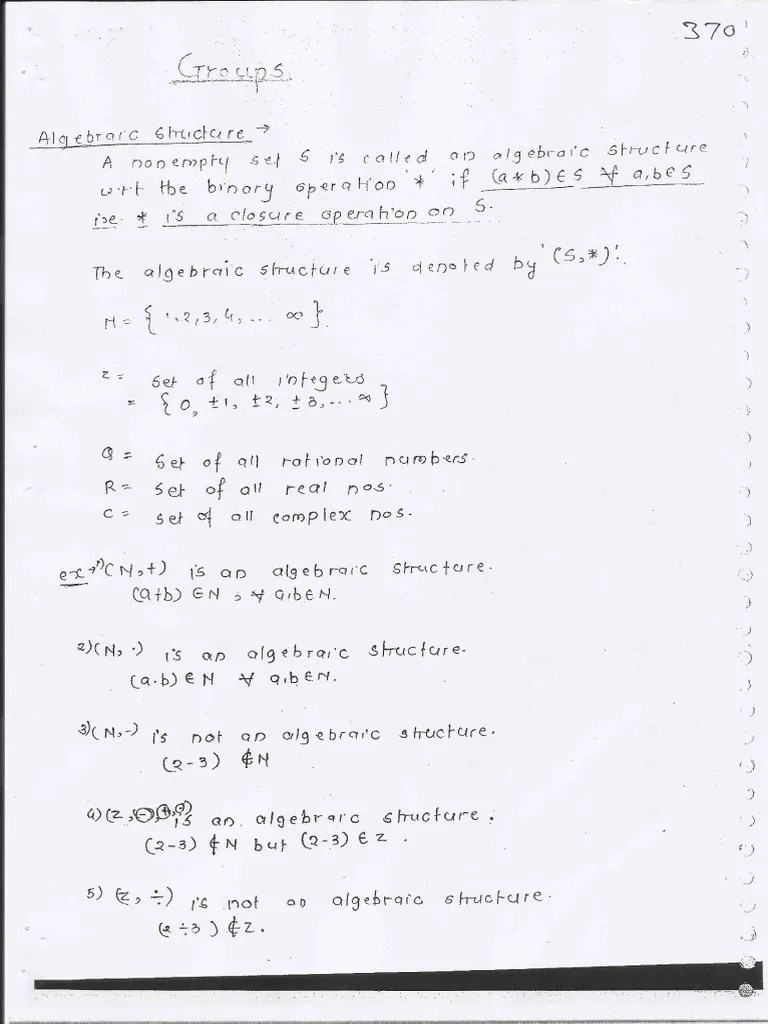 370
Groups.
Algebraic Structure →
A nonempty set S is called an algebraic structure
w.r.t the binary operation '*' if (a * b) ∈ S ∀ a,b ∈ S
i.e. * is a closure operation on S.
The algebraic structure is denoted by '(S,*)'.
N = { 1,2,3,4,... ∞ }.
Z = set of all integers
= { 0, ±1, ±2, ±3,... ∞ }
Q = set of all rational numbers.
R = set of all real nos.
C = set of all complex nos.
ex → 1) (N,+) is an algebraic structure.
(a+b) ∈ N , ∀ a,b ∈ N.
2) (N, ·) is an algebraic structure.
(a·b) ∈ N ∀ a,b ∈ N.
3) (N,-) is not an algebraic structure.
(2-3) ∉ N
4) (Z, is an algebraic structure.
(2-3) ∉ N but (2-3) ∈ Z .
5) (Z, ÷) is not an algebraic structure.
(2 ÷ 3) ∉ Z.